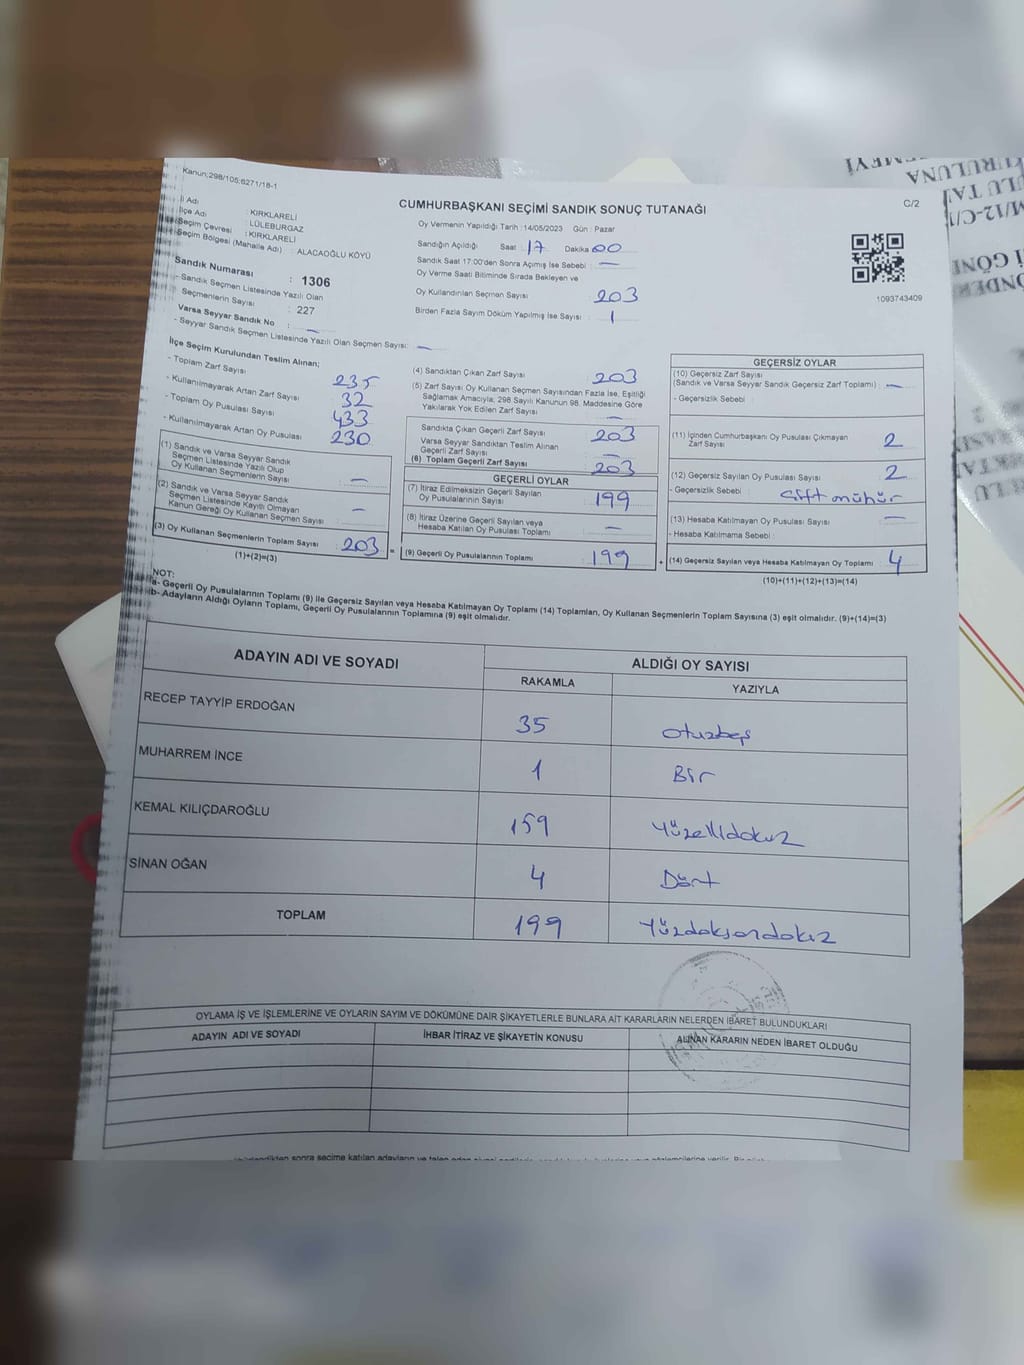 Kanun:298/105;6271/18-1
CUMHURBAŞKANI SEÇİMİ SANDIK SONUÇ TUTANAĞI
C/2
İl Adı : KIRKLARELİ
İlçe Adı : LÜLEBURGAZ
Seçim Çevresi : KIRKLARELİ
Seçim Bölgesi (Mahalle Adı) : ALACAOĞLU KÖYÜ
Sandık Numarası : 1306
- Sandık Seçmen Listesinde Yazılı Olan
Seçmenlerin Sayısı : 227
Varsa Seyyar Sandık No : —
- Seyyar Sandık Seçmen Listesinde Yazılı Olan Seçmen Sayısı: —
Oy Vermenin Yapıldığı Tarih : 14/05/2023 Gün : Pazar
Sandığın Açıldığı Saat : 17 Dakika 00
Sandık Saat 17:00'den Sonra Açımış İse Sebebi : —
Oy Verme Saati Bitiminde Sırada Bekleyen ve
Oy Kullandırılan Seçmen Sayısı 203
Birden Fazla Sayım Döküm Yapılmış İse Sayısı : 1
1093743409
İlçe Seçim Kurulundan Teslim Alınan;
- Toplam Zarf Sayısı 235
- Kullanılmayarak Artan Zarf Sayısı 32
- Toplam Oy Pusulası Sayısı 433
- Kullanılmayarak Artan Oy Pusulası 230
(1) Sandık ve Varsa Seyyar Sandık
Seçmen Listesinde Yazılı Olup
Oy Kullanan Seçmenlerin Sayısı : —
(2) Sandık ve Varsa Seyyar Sandık
Seçmen Listesinde Kayıtlı Olmayan
Kanun Gereği Oy Kullanan Seçmen Sayısı : —
(3) Oy Kullanan Seçmenlerin Toplam Sayısı : 203
(1)+(2)=(3)
(4) Sandıktan Çıkan Zarf Sayısı : 203
(5) Zarf Sayısı Oy Kullanan Seçmen Sayısından Fazla İse, Eşitliği
Sağlamak Amacıyla; 298 Sayılı Kanunun 98. Maddesine Göre
Yakılarak Yok Edilen Zarf Sayısı : —
Sandıkta Çıkan Geçerli Zarf Sayısı : 203
Varsa Seyyar Sandıktan Teslim Alınan
Geçerli Zarf Sayısı : —
(6) Toplam Geçerli Zarf Sayısı : 203
GEÇERLİ OYLAR
(7) İtiraz Edilmeksizin Geçerli Sayılan
Oy Pusulalarının Sayısı : 199
(8) İtiraz Üzerine Geçerli Sayılan veya
Hesaba Katılan Oy Pusulası Toplamı : —
= (9) Geçerli Oy Pusulalarının Toplamı : 199
GEÇERSİZ OYLAR
(10) Geçersiz Zarf Sayısı
(Sandık ve Varsa Seyyar Sandık Geçersiz Zarf Toplamı) : —
- Geçersizlik Sebebi :
(11) İçinden Cumhurbaşkanı Oy Pusulası Çıkmayan
Zarf Sayısı : 2
(12) Geçersiz Sayılan Oy Pusulası Sayısı : 2
- Geçersizlik Sebebi : Çift mühür
(13) Hesaba Katılmayan Oy Pusulası Sayısı : —
- Hesaba Katılmama Sebebi :
+ (14) Geçersiz Sayılan veya Hesaba Katılmayan Oy Toplamı : 4
(10)+(11)+(12)+(13)=(14)
NOT:
a- Geçerli Oy Pusulalarının Toplamı (9) ile Geçersiz Sayılan veya Hesaba Katılmayan Oy Toplamı (14) Toplamları, Oy Kullanan Seçmenlerin Toplam Sayısına (3) eşit olmalıdır. (9)+(14)=(3)
b- Adayların Aldığı Oyların Toplamı, Geçerli Oy Pusulalarının Toplamına (9) eşit olmalıdır.
ADAYIN ADI VE SOYADI
ALDIĞI OY SAYISI
RAKAMLA YAZIYLA
RECEP TAYYİP ERDOĞAN 35 otuzbeş
MUHARREM İNCE 1 Bir
KEMAL KILIÇDAROĞLU 159 Yüzellidokuz
SİNAN OĞAN 4 Dört
TOPLAM 199 Yüzdoksandokuz
OYLAMA İŞ VE İŞLEMLERİNE VE OYLARIN SAYIM VE DÖKÜMÜNE DAİR ŞİKAYETLERLE BUNLARA AİT KARARLARIN NELERDEN İBARET BULUNDUKLARI
ADAYIN ADI VE SOYADI İHBAR İTİRAZ VE ŞİKAYETİN KONUSU ALINAN KARARIN NEDEN İBARET OLDUĞU